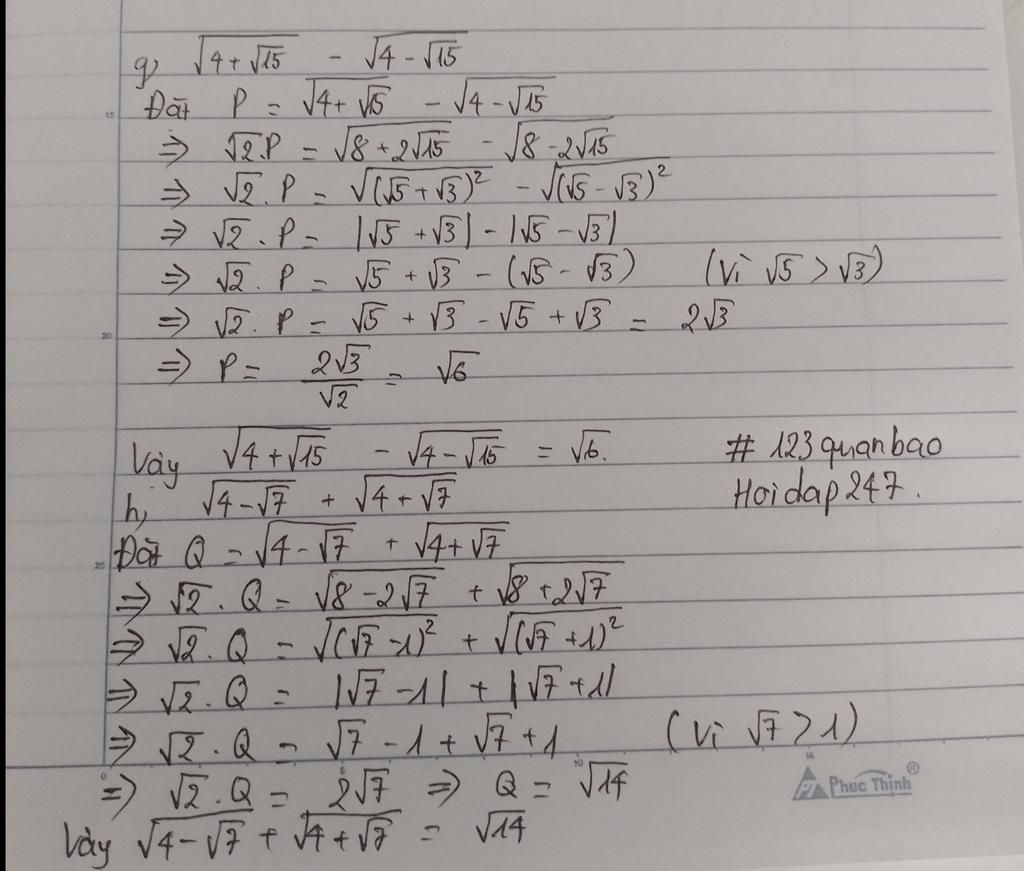 g, √(4+√15) - √(4-√15)
Đặt P = √(4+√15) - √(4-√15)
⇒ √2.P = √(8+2√15) - √(8-2√15)
⇒ √2.P = √((√5+√3)²) - √((√5-√3)²)
⇒ √2.P = |√5+√3| - |√5-√3|
⇒ √2.P = √5+√3 - (√5-√3) (Vì √5 > √3)
⇒ √2.P = √5+√3-√5+√3 = 2√3
⇒ P = 2√3/√2 = √6
Vậy √(4+√15) - √(4-√15) = √6.
# 123quanbao
Hoidap247.
h, √(4-√7) + √(4+√7)
Đặt Q = √(4-√7) + √(4+√7)
⇒ √2.Q = √(8-2√7) + √(8+2√7)
⇒ √2.Q = √((√7-1)²) + √((√7+1)²)
⇒ √2.Q = |√7-1| + |√7+1|
⇒ √2.Q = √7-1+√7+1 (Vì √7 > 1)
⇒ √2.Q = 2√7 ⇒ Q = √14
Vậy √(4-√7) + √(4+√7) = √14
Phuc Thịnh®